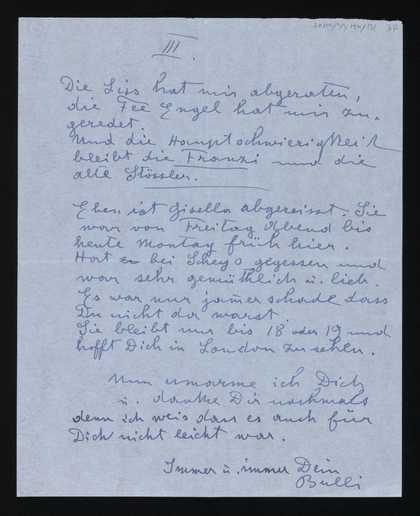 III.
Die Liss hat mir abgeraten,
die Fee Engel hat mir zu-
geredet
Und die Hauptschwierigkeit
bleibt die Franzi und die
alte Stössler.
Eben ist Gisella abgereisst. Sie
war von Freitag Abend bis
heute Montag früh hier.
Hat bei gegessen und
war sehr gemüthlich u. lieb.
Es war nur jam̄er schade dass
Du nicht da warst.
Sie bleibt nur bis 18 oder 19 und
hofft Dich in London zu sehen.
Nun umarme ich Dich
u. danke Dir nochmals
denn ich weis dass es auch für
Dich nicht leicht war.
Immer u. immer Dein
Bulli